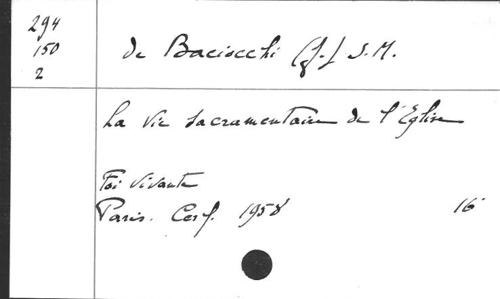 294
150
2
de Baciocchi (J.) S.M.
La Vie Sacramentaire de l'Eglise
Foi Vivante
Paris. Cerf. 1958
16